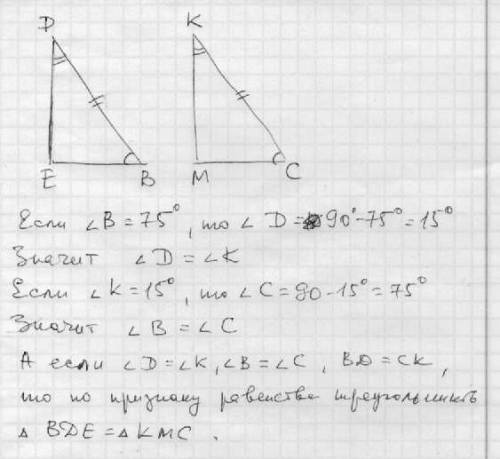 D K
E B M C
Если ∠B = 75°, то ∠D = 90° - 75° = 15°
Значит ∠D = ∠K
Если ∠K = 15°, то ∠C = 90 - 15° = 75°
Значит ∠B = ∠C
А если ∠D = ∠K, ∠B = ∠C, BD = CK,
то по признаку равенства треугольников
△ BDE = △ KMC.